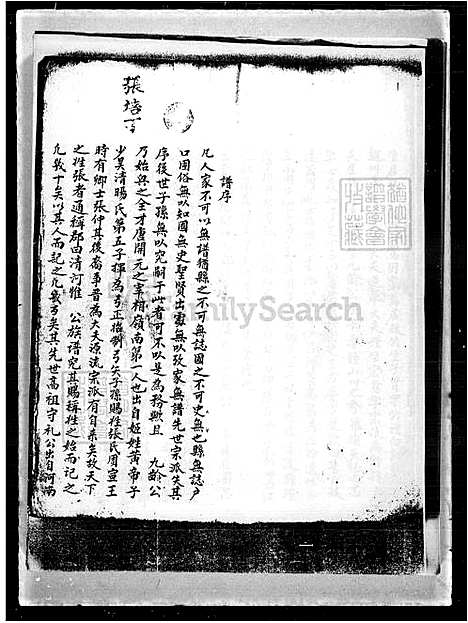 譜序
凡人家不可以無譜猶縣之不可無誌國之不可史無之縣無誌戶
口國俗無以知國無史聖賢出處無以攷家無譜先世宗派失其
序後世子孫無以究嗣于此者可不以是為務歟且 九齡公
乃始興之全才唐開元之宰相嶺南第一人也出自姬姓黃帝子
少昊清陽氏第五子揮為弓正始制弓矢子孫賜姓張氏周宣王
時有鄉士張仲其後裔事晉為大夫源流宗派有自来矣故天下
之姓張者通稱郡曰清河惟 公族譜究其賜稱姓之始而記之
凡幾十矣以其人而記之凡幾弓矣其先世高祖守礼公出自河南
張培
FamilySearch